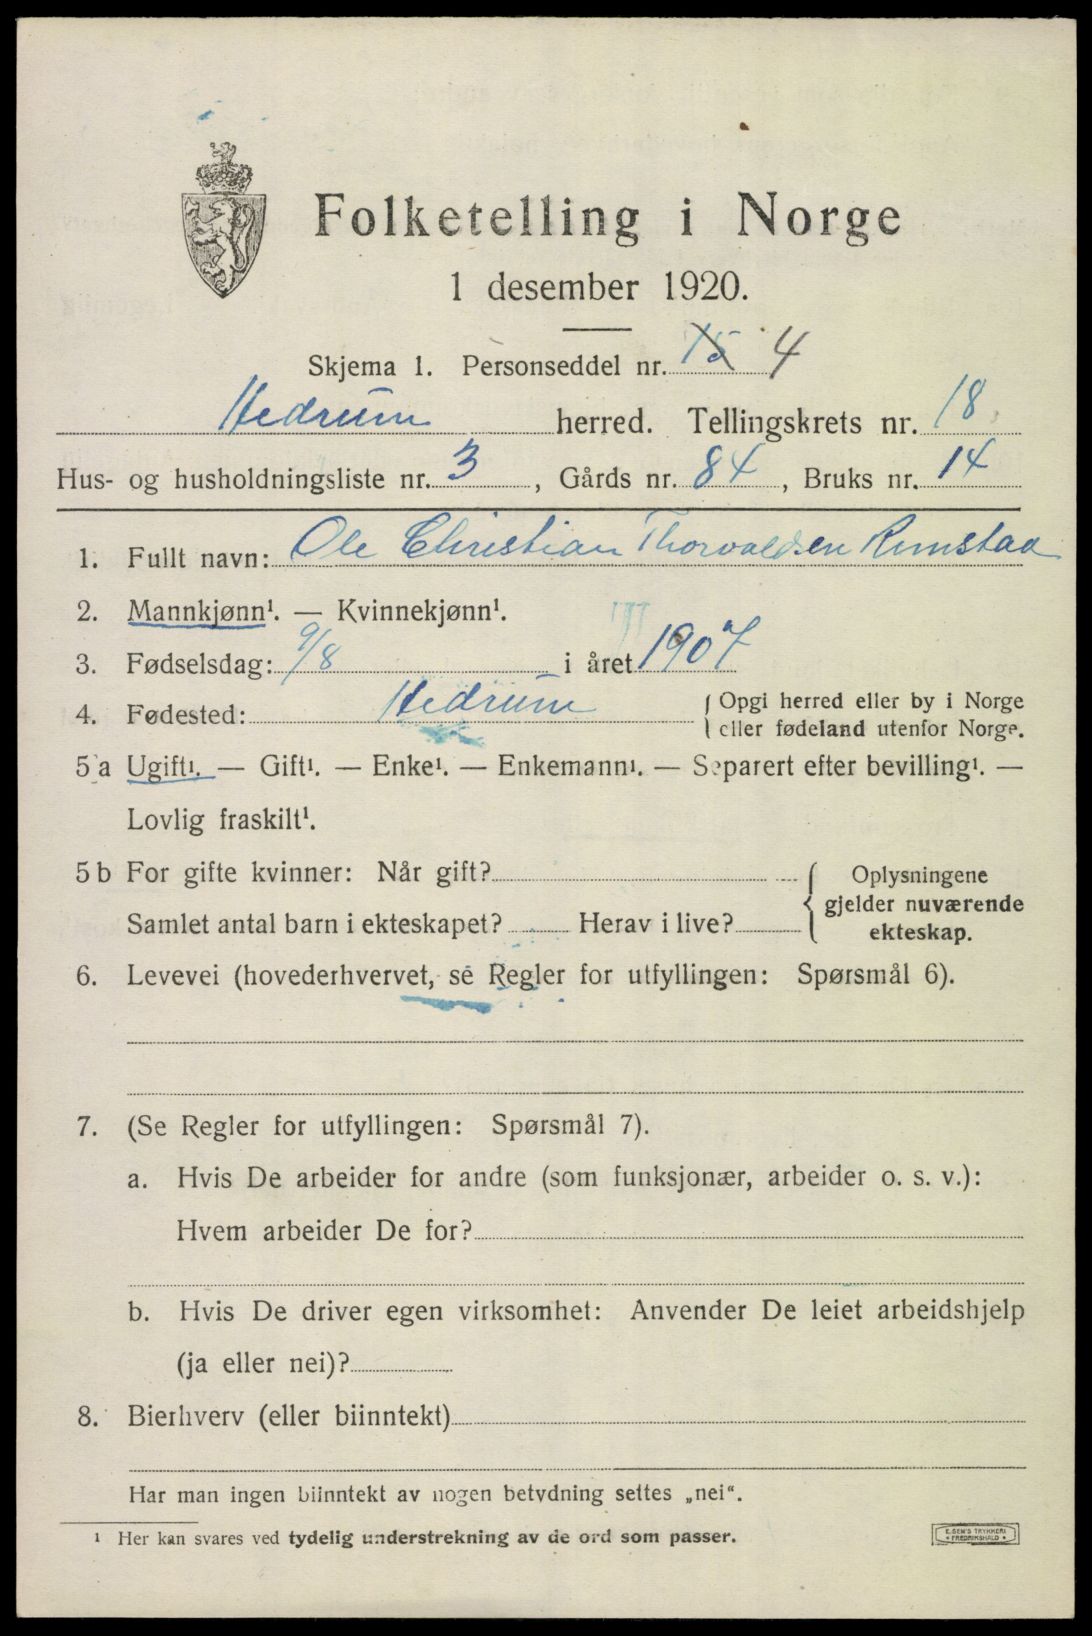 Folketelling i Norge
1 desember 1920.
Skjema 1. Personseddel nr. 15 4
Hedrum herred. Tellingskrets nr. 18
Hus- og husholdningsliste nr. 3, Gårds nr. 84, Bruks nr. 14
1. Fullt navn: Ole Christian Thorvaldsen Rimstad
2. Mannkjønn¹. — Kvinnekjønn¹.
3. Fødselsdag: 9/8 i året 1907
4. Fødested: Hedrum { Opgi herred eller by i Norge
eller fødeland utenfor Norge.
5 a Ugift¹. — Gift¹. — Enke¹. — Enkemann¹. — Separert efter bevilling¹. —
Lovlig fraskilt¹.
5 b For gifte kvinner: Når gift?
Samlet antal barn i ekteskapet? Herav i live?
{ Oplysningene
gjelder nuværende
ekteskap.
6. Levevei (hovederhvervet, se Regler for utfyllingen: Spørsmål 6).
7. (Se Regler for utfyllingen: Spørsmål 7).
a. Hvis De arbeider for andre (som funksjonær, arbeider o. s. v.):
Hvem arbeider De for?
b. Hvis De driver egen virksomhet: Anvender De leiet arbeidshjelp
(ja eller nei)?
8. Bierhverv (eller biinntekt)
Har man ingen biinntekt av nogen betydning settes „nei“.
¹ Her kan svares ved tydelig understrekning av de ord som passer.
E. SEM'S TRYKKERI
• FREDRIKSHALD •